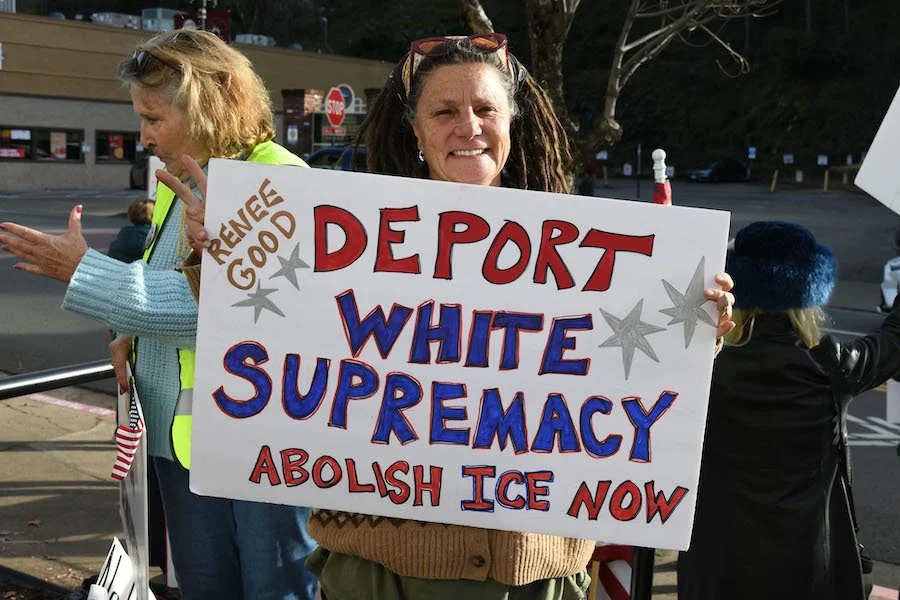 RENEE
GOOD
DEPORT
WHITE
SUPREMACY
ABOLISH ICE NOW
STOP